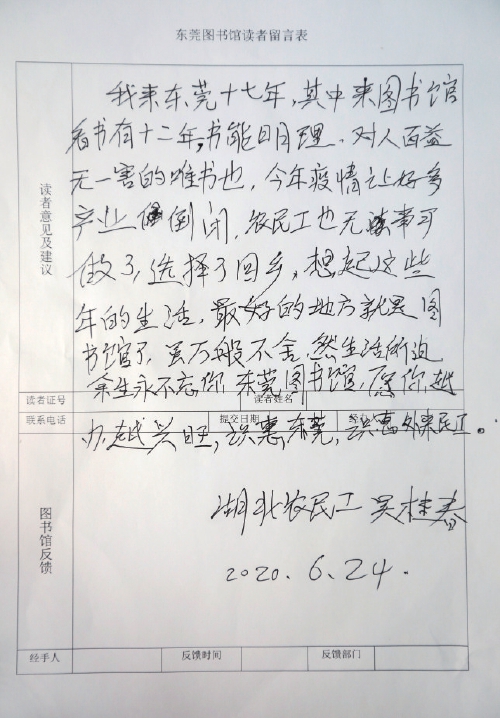 东莞图书馆读者留言表
读者意见及建议
我来东莞十七年，其中来图书馆
看书有十二年，书能明理、对人百益
无一害的唯书也，今年疫情让好多
产业倒闭，农民工也无事可
做了，选择了回乡，想起这些
年的生活，最好的地方就是图
书馆了，虽万般不舍，然生活所迫
余生永不忘你，东莞图书馆，愿你越
办越兴旺，识惠东莞，识惠外来民工。
读者证号 读者姓名
联系电话 提交日期
图书馆反馈
湖北农民工 吴桂春
2020.6.24.
经手人 反馈时间 反馈部门